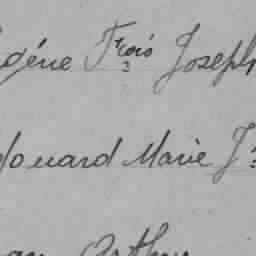 gène Frois Joseph
douard Marie J.
Arthur